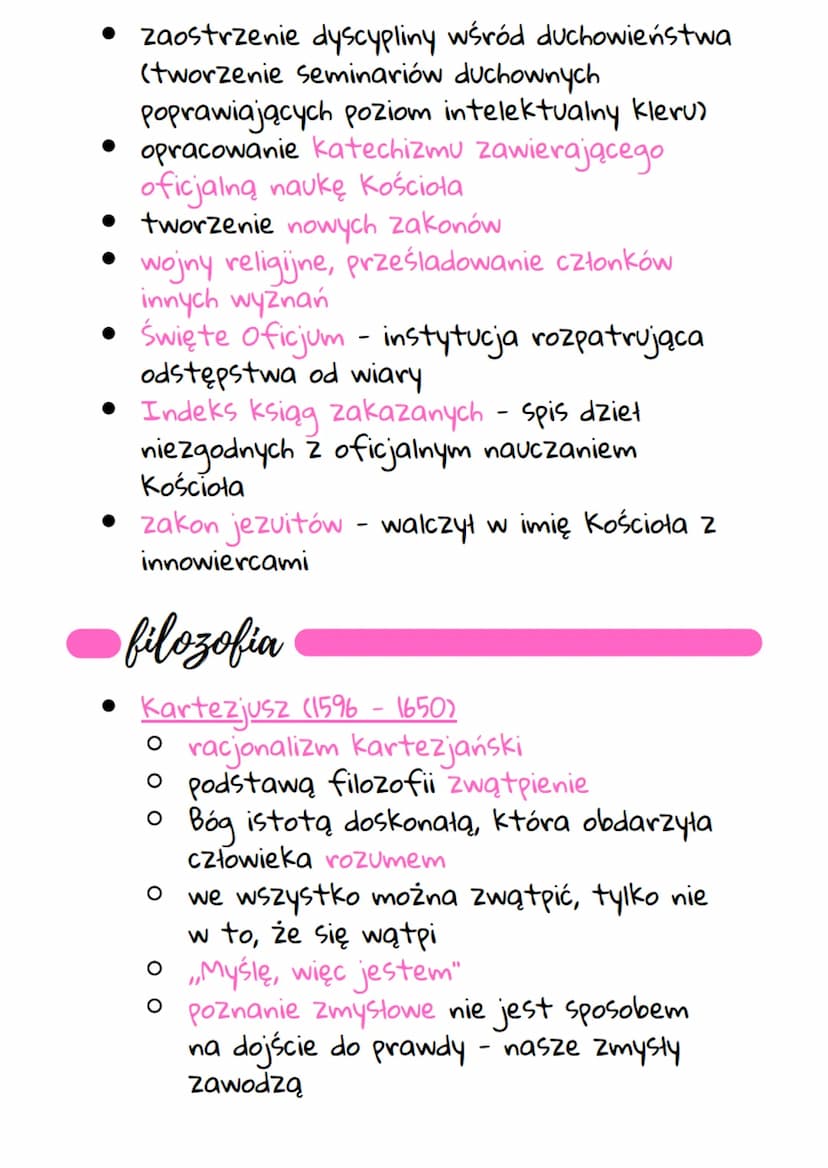 • zaostrzenie dyscypliny wśród duchowieństwa
(tworzenie seminariów duchownych
poprawiających poziom intelektualny kleru)
• opracowanie katechizmu zawierającego
oficjalną naukę Kościoła
• tworzenie nowych zakonów
• wojny religijne, prześladowanie członków
innych wyznań
• Święte Oficjum - instytucja rozpatrująca
odstępstwa od wiary
• Indeks ksiąg zakazanych - spis dzieł
niezgodnych z oficjalnym nauczaniem
Kościoła
• zakon jezuitów - walczył w imię Kościoła z
innowiercami
filozofia
• Kartezjusz (1596 - 1650)
○ racjonalizm kartezjański
○ podstawą filozofii zwątpienie
○ Bóg istotą doskonałą, która obdarzyła
człowieka rozumem
○ we wszystko można zwątpić, tylko nie
w to, że się wątpi
○ „Myślę, więc jestem"
○ poznanie zmysłowe nie jest sposobem
na dojście do prawdy - nasze zmysły
zawodzą